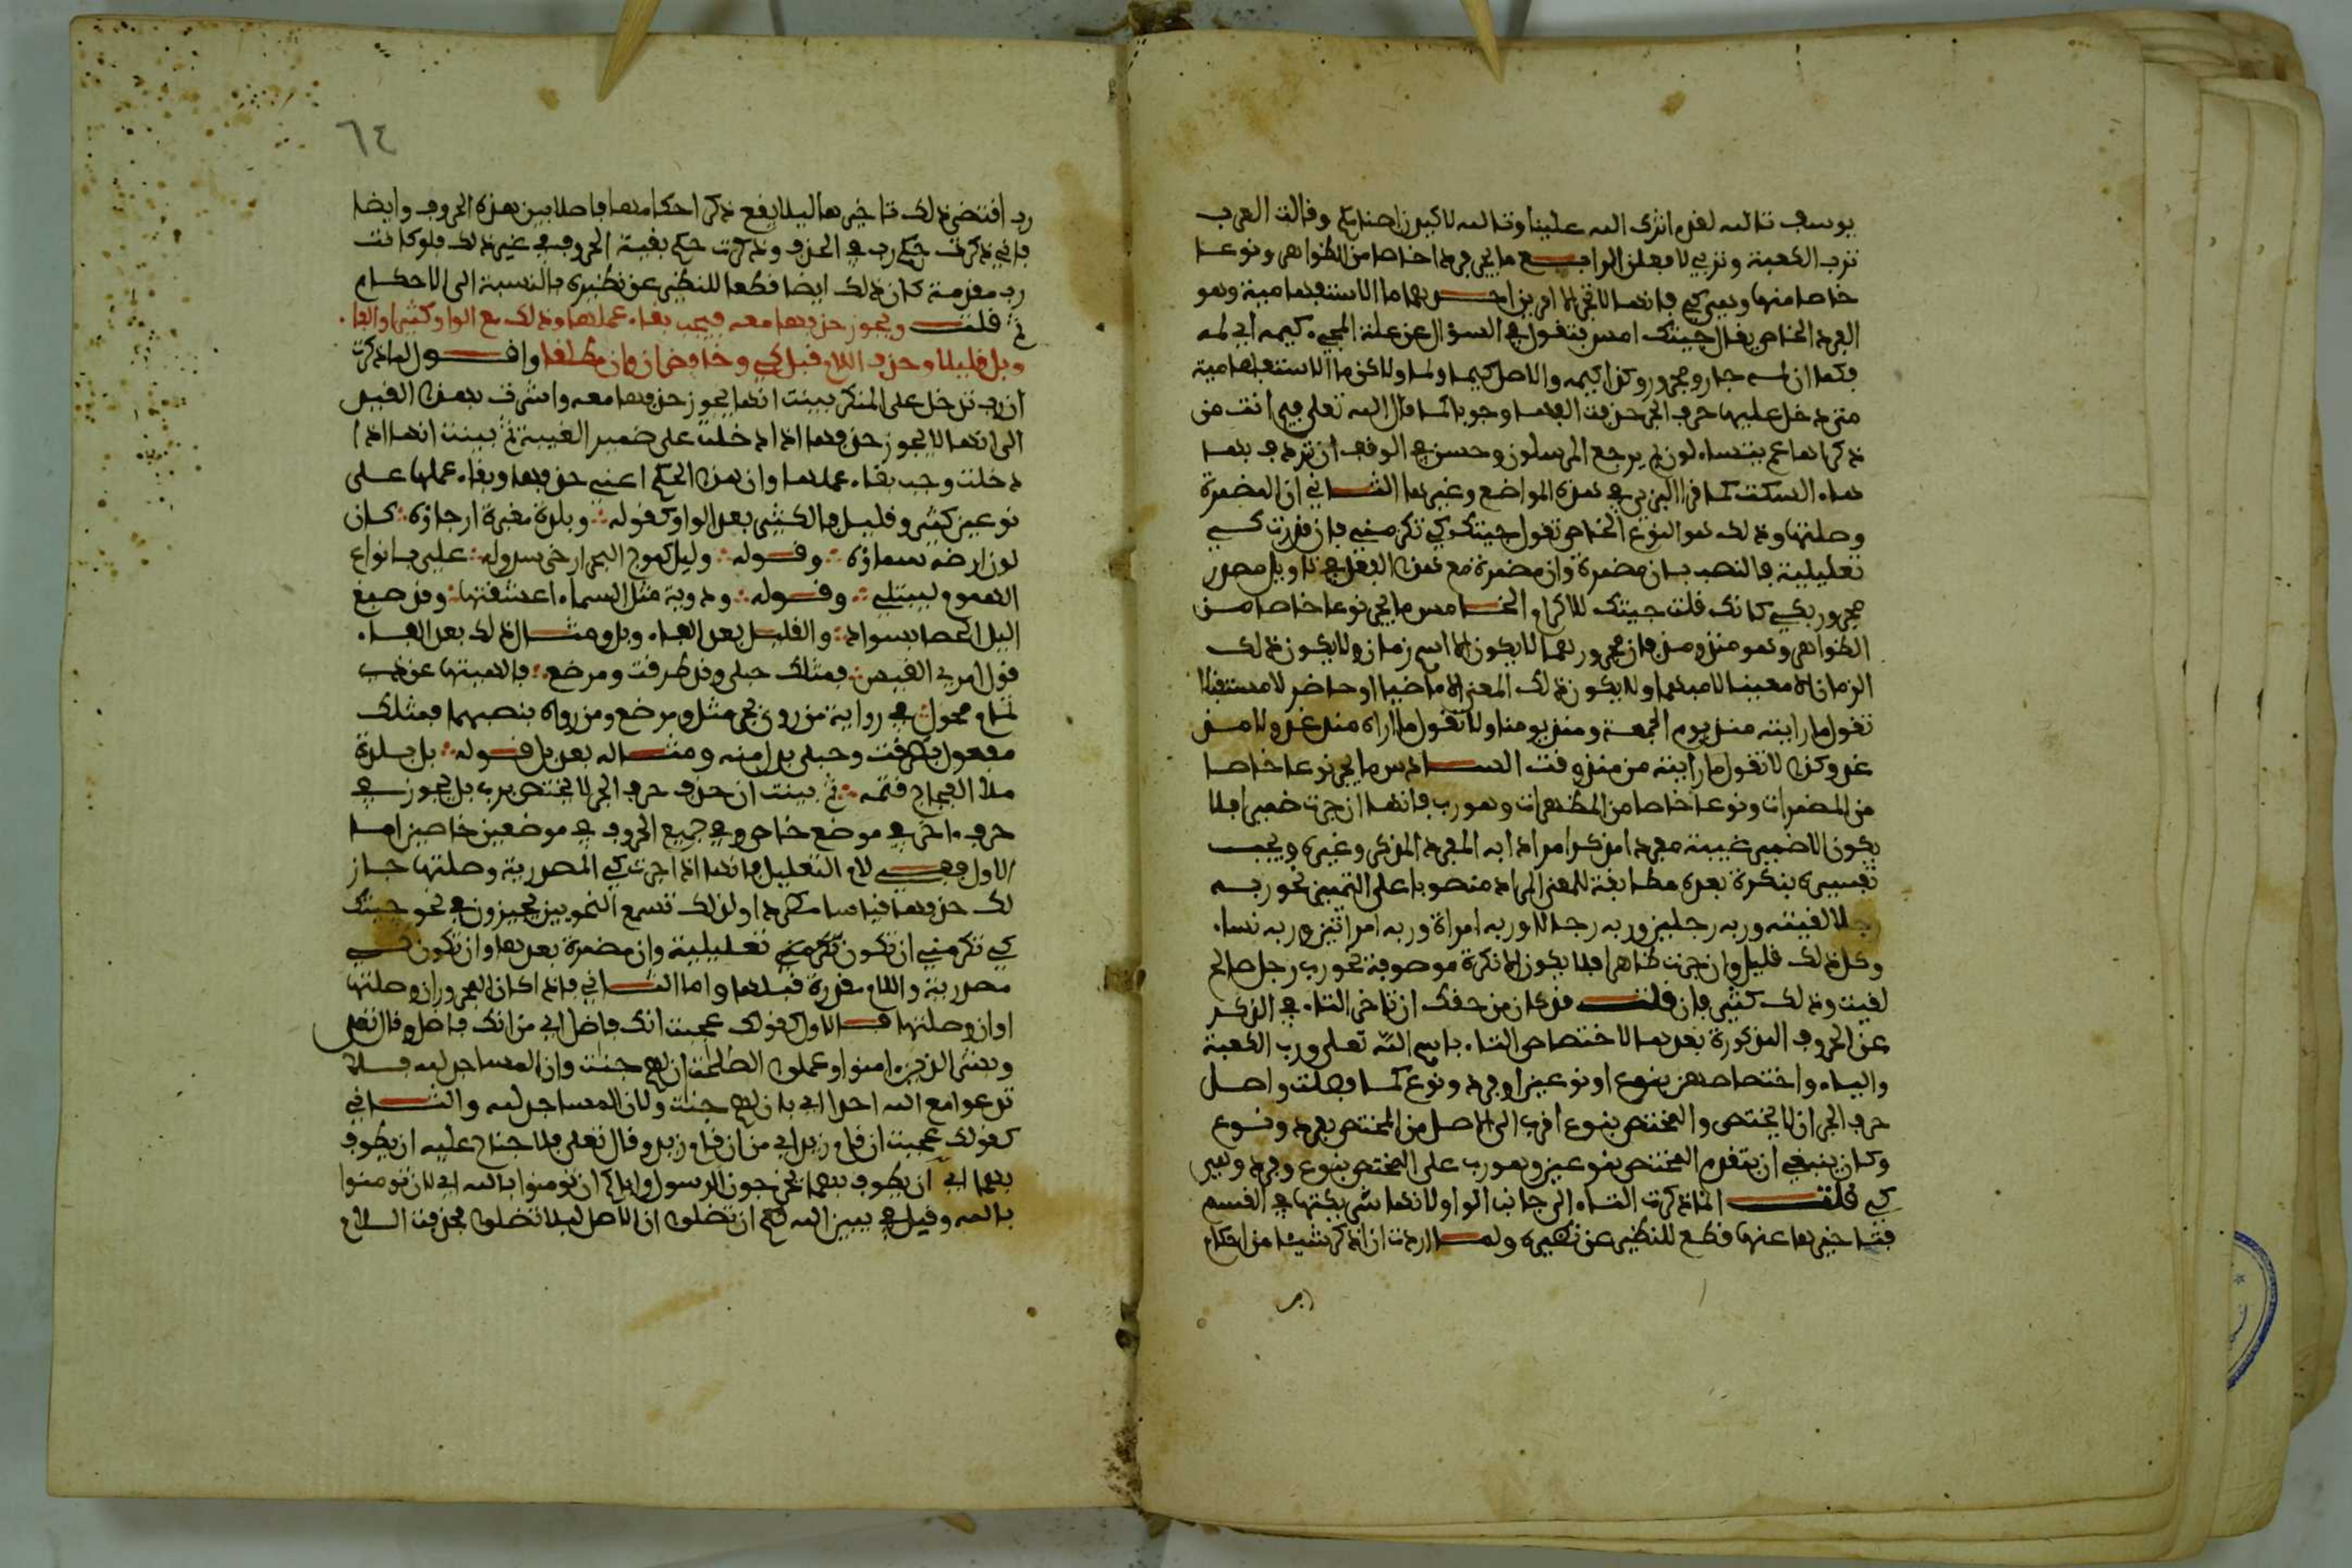 يوسف تالله لقد اثرك الله علينا وتالله لاكيدن اصنامكم وقالت العرب
ترب الكعبة وتربي لافعلن الرابع ما يجر فردا خاصا من الظواهر ونوعا
خاصا منها وهي كي فانها لا تجر الا امرين احدهما ما الاستفهامية وهو
الفرد الخاص يقال جيتك امس فتقول في السؤال عن علة المجيء كيمه اي لمه
فكما ان لمه جار ومجرور وكذا كيمه والاصل كيما ولما ولاكن ما الاستفهامية
متى دخل عليها حرف الجر حذفت الفها وجوبا كما قال الله تعلى فيم انت من
ذكراها عم يتساءلون بم يرجع المرسلون وحسن في الوقف ان تردف بهاء
هاء السكت كما قرا البزي في هذه المواضع وغيرها الثاني ان المضمرة
وصلتها وذلك هو النوع الخاص تقول جيتك كي تكرمني فان قدرت كي
تعليلية فالنصب بان مضمرة وان مضمرة مع هذا الفعل في تاويل مصدر
مجرور بكي كانك قلت جيتك للاكرام الخامس ما يجر نوعا خاصا من
الظواهر وهو منذ ومذ فان مجرورهما لا يكون الا اسم زمان ولا يكون ذلك
الزمان الا معينا لا مبهما ولا يكون ذلك المعنى الا ماضيا او حاضر لا مستقبلا
تقول ما رايته منذ يوم الجمعة ومنذ يومنا ولا تقول ما اراه منذ غد ولا مذ
غد وكذا لا تقول ما رايته من منذ وقت السادس ما يجر نوعا خاصا
من المضمرات ونوعا خاصا من المظهرات وهو رب فانها ان جرت ضميرا فلا
يكون الا ضمير غيبة مفردا مذكرا مرادا به المفرد المذكر وغيره ويجب
تفسيره بنكرة بعده مطابقة للمعنى المراد منصوبا على التمييز نحو ربه
رجلا لقيته وربه رجلين وربه رجالا وربه امراة وربه امراتين وربه نساء
وكل ذلك قليل وان جرت ظاهرا فلا يكون الا نكرة موصوفة نحو رب رجل صالح
لقيت وذلك كثير فان قلت قد كان من حقك ان تاخر التاء في الذكر
عن الحروف المذكورة بعدها لاختصاص التاء باسم الله تعلى ورب الكعبة
والياء واختصاصهن بنوع او نوعين او فرد ونوع كما فصلت واصل
حرف الجر ان لا يختص والمختص بنوع اقرب الى الاصل من المختص بفرد ونوع
وكان ينبغي ان يتقدم المختص بنوعين وهو رب على المختص بنوع وفرد وهي
كي قلت انما ذكرت التاء الى جانب الواو لانها شريكتها في القسم
فتاخيرها عنها قطع للنظير عن نظيره ولما اردت ان اذكر شيئا من احكام
رب
٦٤
رب اقتضى ذلك تاخيرها ليلا يقع ذكر احكامها فاصلا بين هذه الحروف وايضا
فاني ذكرت حكم رب في الحذف وذكرت حكم بقية الحروف في غير ذلك فلو كانت
رب مقدمة كان ذلك ايضا قطعا للنظير عن نظيره بالنسبة الى الاحكام
ثم قلت ويجوز حذفها معه فيجب بقاء عملها وذلك مع الواو كثيرا والفا
وبل قليلا وحذف اللام قبل كي وخافض ان وان مطلقا واقول لما ذكرت
ان رب تدخل على المنكر بينت انها يجوز حذفها معه واشرت بهذا القيد
الى انها لا يجوز حذفها اذا دخلت على ضمير الغيبة ثم بينت انها اذا
دخلت وجب بقاء عملها وان هذا الحكم اعني حذفها وبقاء عملها على
نوعين كثير وقليل فالكثير بعد الواو كقوله وبلدة مغبرة ارجاؤه كان
لون ارضه سماؤه وقوله وليل كموج البحر ارخى سدوله علي بانواع
الهموم ليبتلي وقوله ودوية مثل السماء اعتسفتها وقد صبغ
اليل الحصا بسواد والقليل بعد الفاء وبل ومثال ذلك بعد الفاء
قول امرئ القيس فمثلك حبلى وقد طرقت ومرضع فالهيتها عن ذي
تمام محول في رواية من روى بجر مثل ومرضع ومن رواه بنصبهما فمثلك
مفعول بطرقت وحبلى بدل منه ومثاله بعد بل قوله بل بلدة
ملأ الفجاج قتمه ثم بينت ان حذف حرف الجر لا يختص برب بل يجوز في
حرف ءاخر في موضع خاص وفي جميع الحروف في موضعين خاصين اما
الاول ففي لام التعليل فانها اذا جرت كي المصدرية وصلتها جاز
لك حذفها قياسا مطردا ولذلك تسمع النحويين يجيزون في نحو جيتك
كي تكرمني ان تكون تكرمني تعليلية وان مضمرة بعدها وان تكون كي
مصدرية واللام مقدرة قبلها واما الثاني فاذا كان المجرور ان وصلتها
او ان وصلتها فالاول كقولك عجبت انك فاضل اي من انك فاضل وقال تعلى
وبشر الذين ءامنوا وعملوا الصالحات ان لهم جنات وان المساجد لله فلا
تدعوا مع الله احدا اي بان لهم جنات ولان المساجد لله والثاني
كقولك عجبت ان قام زيد اي من ان قام زيد وقال تعلى فلا جناح عليه ان يطوف
بهما اي ان يطوف بهما يخرجون الرسول واياكم ان تومنوا بالله اي لان تومنوا
بالله وقيل في يبين الله لكم ان تضلوا ان الاصل ليلا تضلوا فحذفت اللام